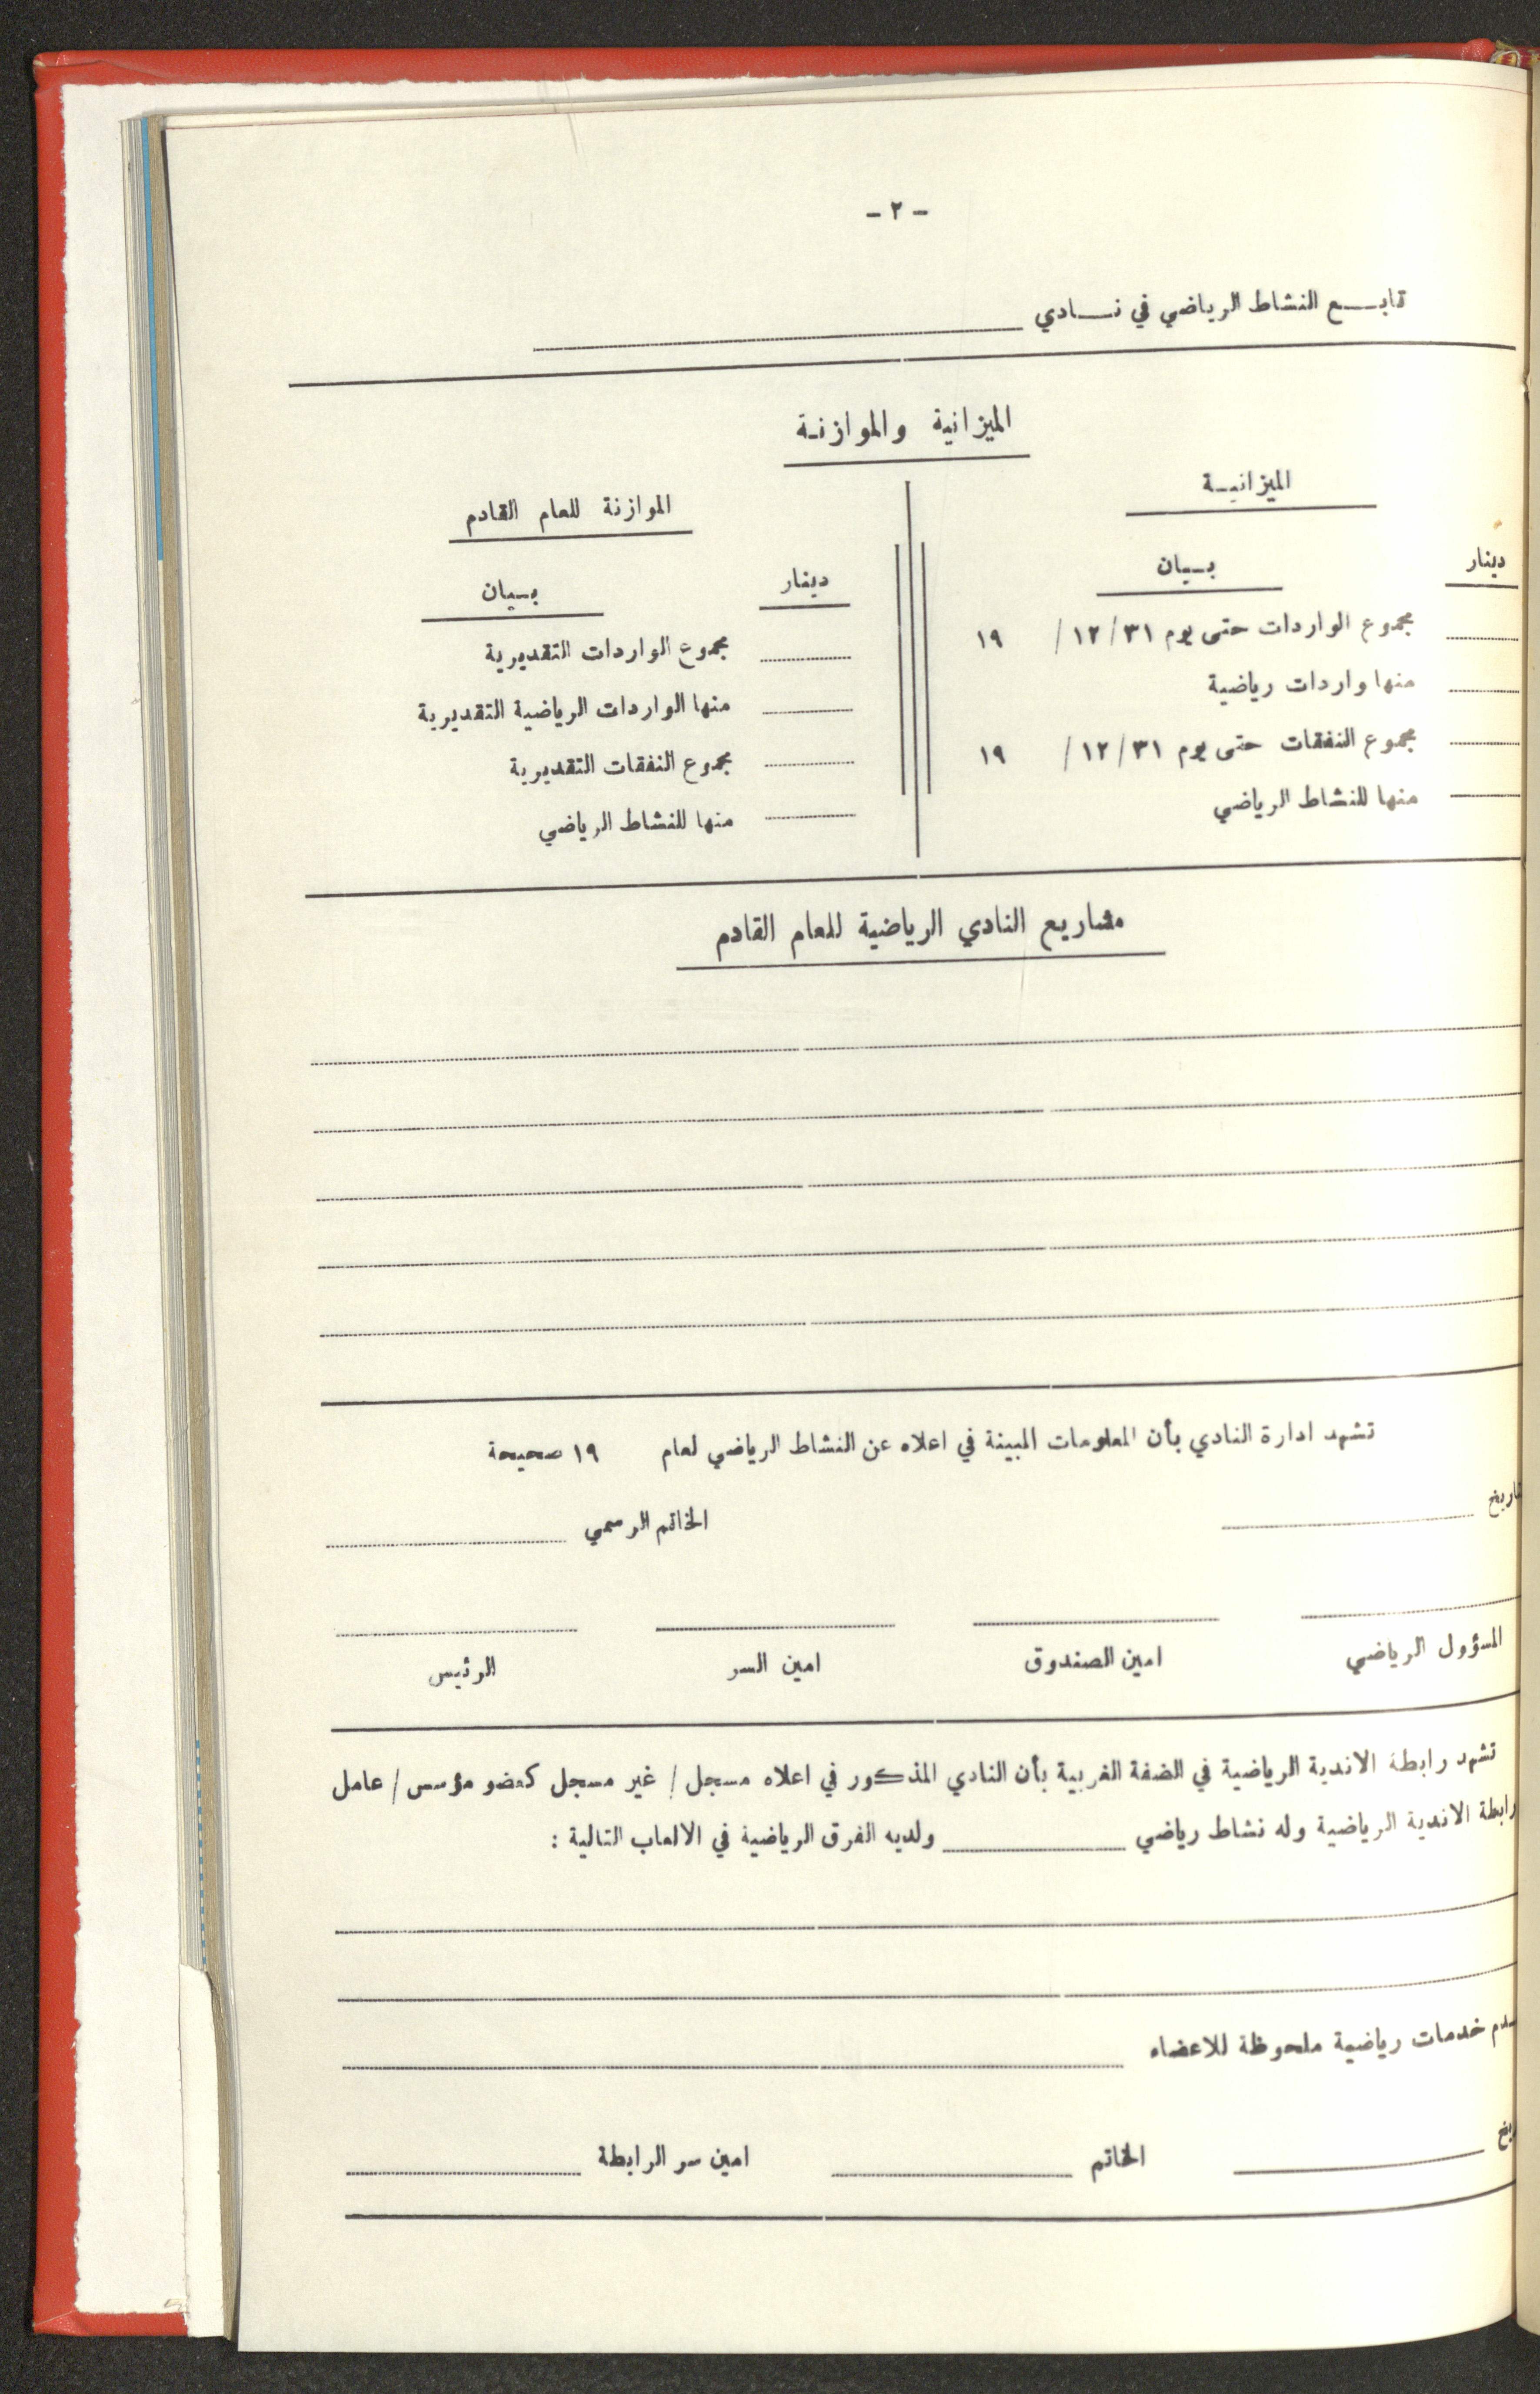 - ٢ -
تابـــع النشاط الرياضي في نـــادي
الميزانية والموازنـة
الميزانيـة
الموازنة للعام القادم
دينار
بـيان
دينار
بـيان
مجموع الواردات حتى يوم ٣١/ ١٢/ ١٩
مجموع الواردات التقديرية
منها واردات رياضية
منها الواردات الرياضية التقديرية
مجموع النفقات حتى يوم ٣١/ ١٢/ ١٩
مجموع النفقات التقديرية
منها للنشاط الرياضي
منها للنشاط الرياضي
مشاريع النادي الرياضية للعام القادم
تشهد ادارة النادي بأن المعلومات المبينة في اعلاه عن النشاط الرياضي لعام ١٩ صحيحة
الخاتم الرسمي
المسؤول الرياضي
امين الصندوق
امين السر
الرئيس
تشهد رابطة الاندية الرياضية في الضفة الغربية بأن النادي المذكور في اعلاه مسجل/ غير مسجل كعضو مؤسس/ عامل
رابطة الاندية الرياضية وله نشاط رياضي ولديه الفرق الرياضية في الالعاب التالية :
خدمات رياضية ملحوظة للاعضاء
الخاتم
امين سر الرابطة